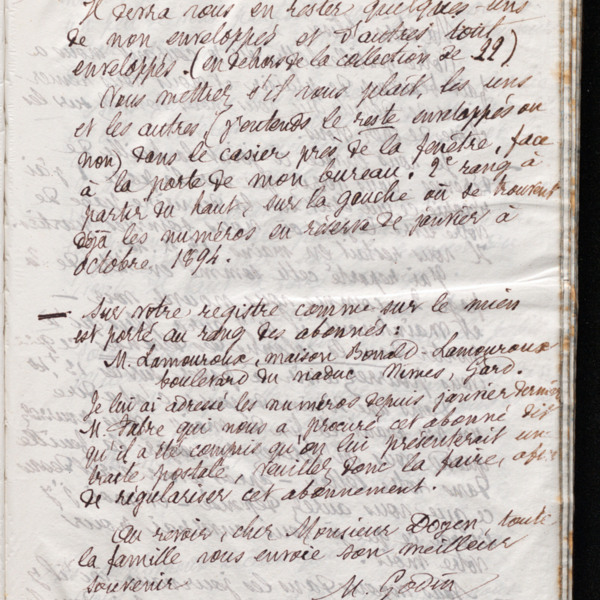 Il devra nous en rester quelques-uns
de non enveloppés et d'autres tout
enveloppés. (en dehors de la collection de 22)
Vous mettrez s'il vous plaît, les uns
et les autres (j'entends le reste enveloppés ou
non) dans le casier près de la fenêtre, face
à la porte de mon bureau. 2e rang à
partir du haut, sur la gauche où se trouvent
déjà les numéros en réserve de janvier à
octobre 1894.
— Sur votre registre comme sur le mien
est porté au rang des abonnés :
M. Lamouroux, maison Lamouroux
boulevard du viaduc Nimes, Gard.
Je lui ai adressé les numéros depuis janvier dernier
M. Fabre qui nous a procuré cet abonné dit
qu'il a été convenu qu'on lui présenterait une
traite postale, veuillez donc la faire, afin
de régulariser cet abonnement.
Au revoir, cher Monsieur Doyen, toute
la famille vous envoie son meilleur
souvenir.
M. Godin